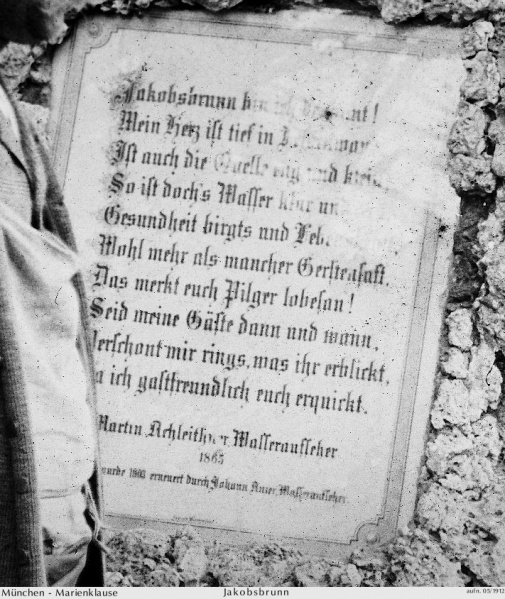 Jakobsbrunn bin ich !
Mein Herz ist tief in
Ist auch die Quelle eng und klein,
So ist doch's Wasser klar und
Gesundheit birgts und
Wohl mehr als mancher Gerstensaft.
Das merkt euch Pilger lobesan!
Seid meine Gäste dann und wann,
Verschont mir rings, was ihr erblickt,
Da ich gastfreundlich euch erquickt.
Martin Achleithner, Wasseraufseher
1865
wurde erneuert durch Johann Wasseraufseher.
München - Marienklause
Jakobsbrunn
aufn. 05/1912